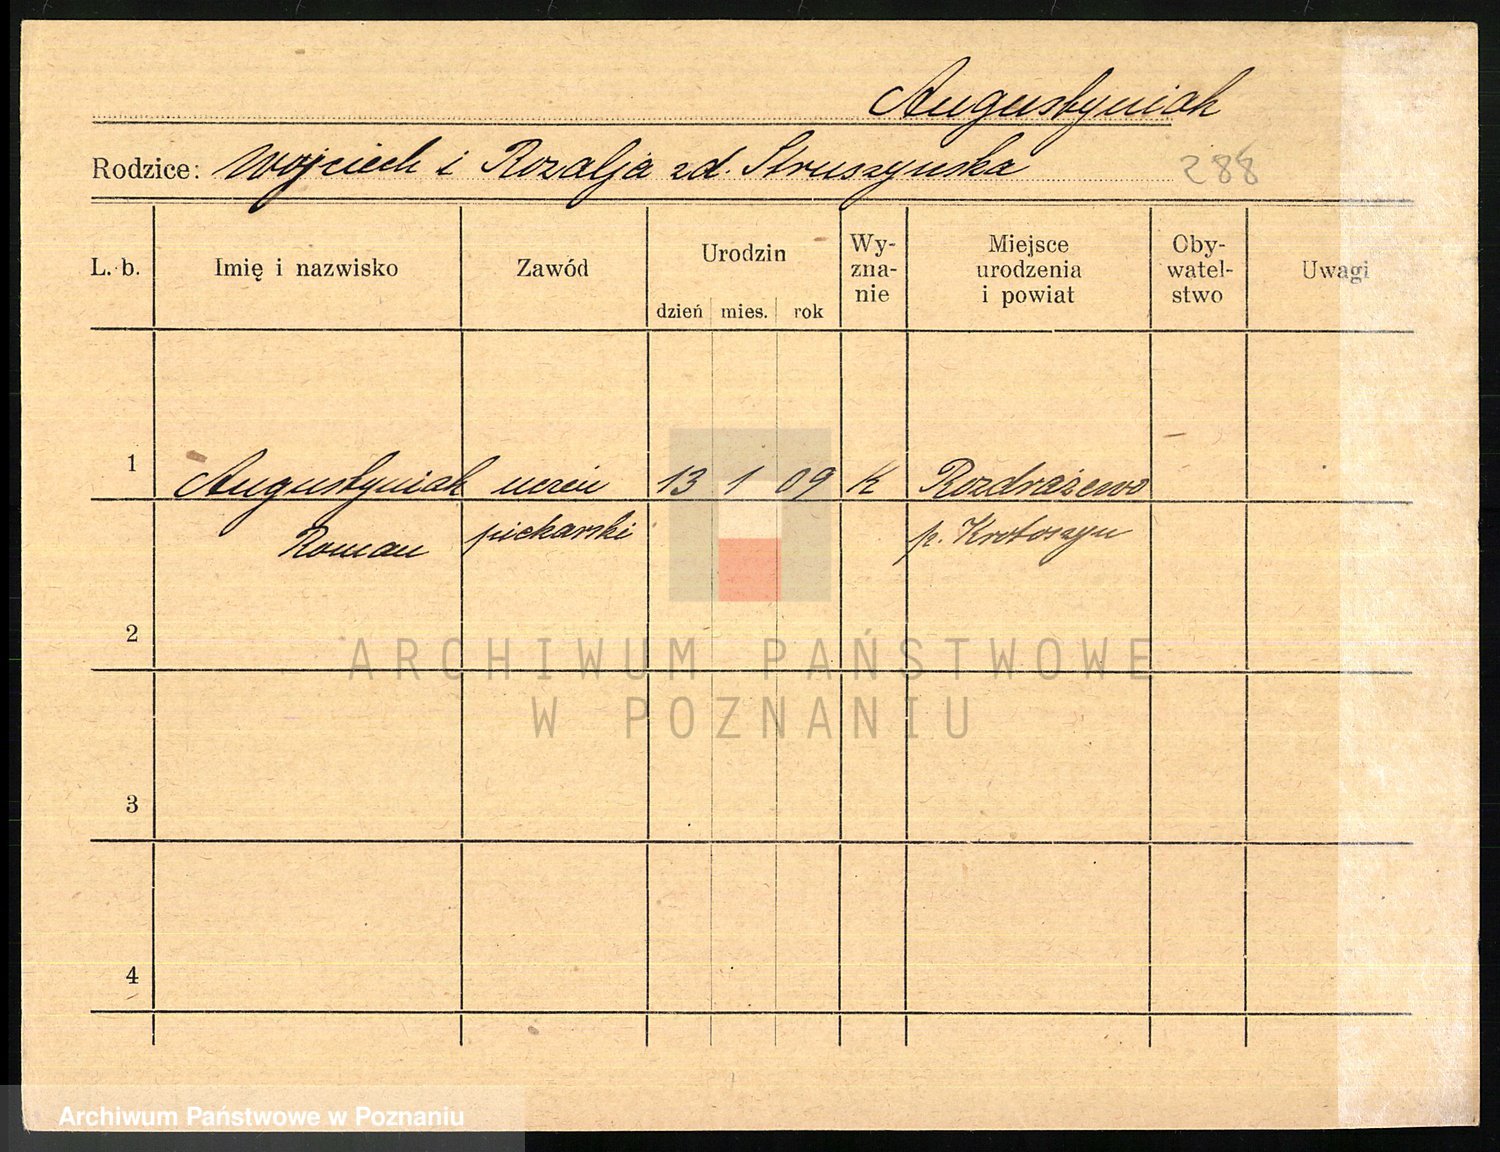 Augustyniak
Rodzice: Wojciech i Rozalja zd. Struszyńska 288
L. b. Imię i nazwisko Zawód Urodzin dzień mies. rok Wy-zna-nie Miejsce urodzenia i powiat Oby-watel-stwo Uwagi
1 Augustyniak uczeń 13 1 09 k Rozdrażewo
Roman piekarski p. Krotoszyn
2
ARCHIWUM PAŃSTWOWE
W POZNANIU
3
4
Archiwum Państwowe w Poznaniu